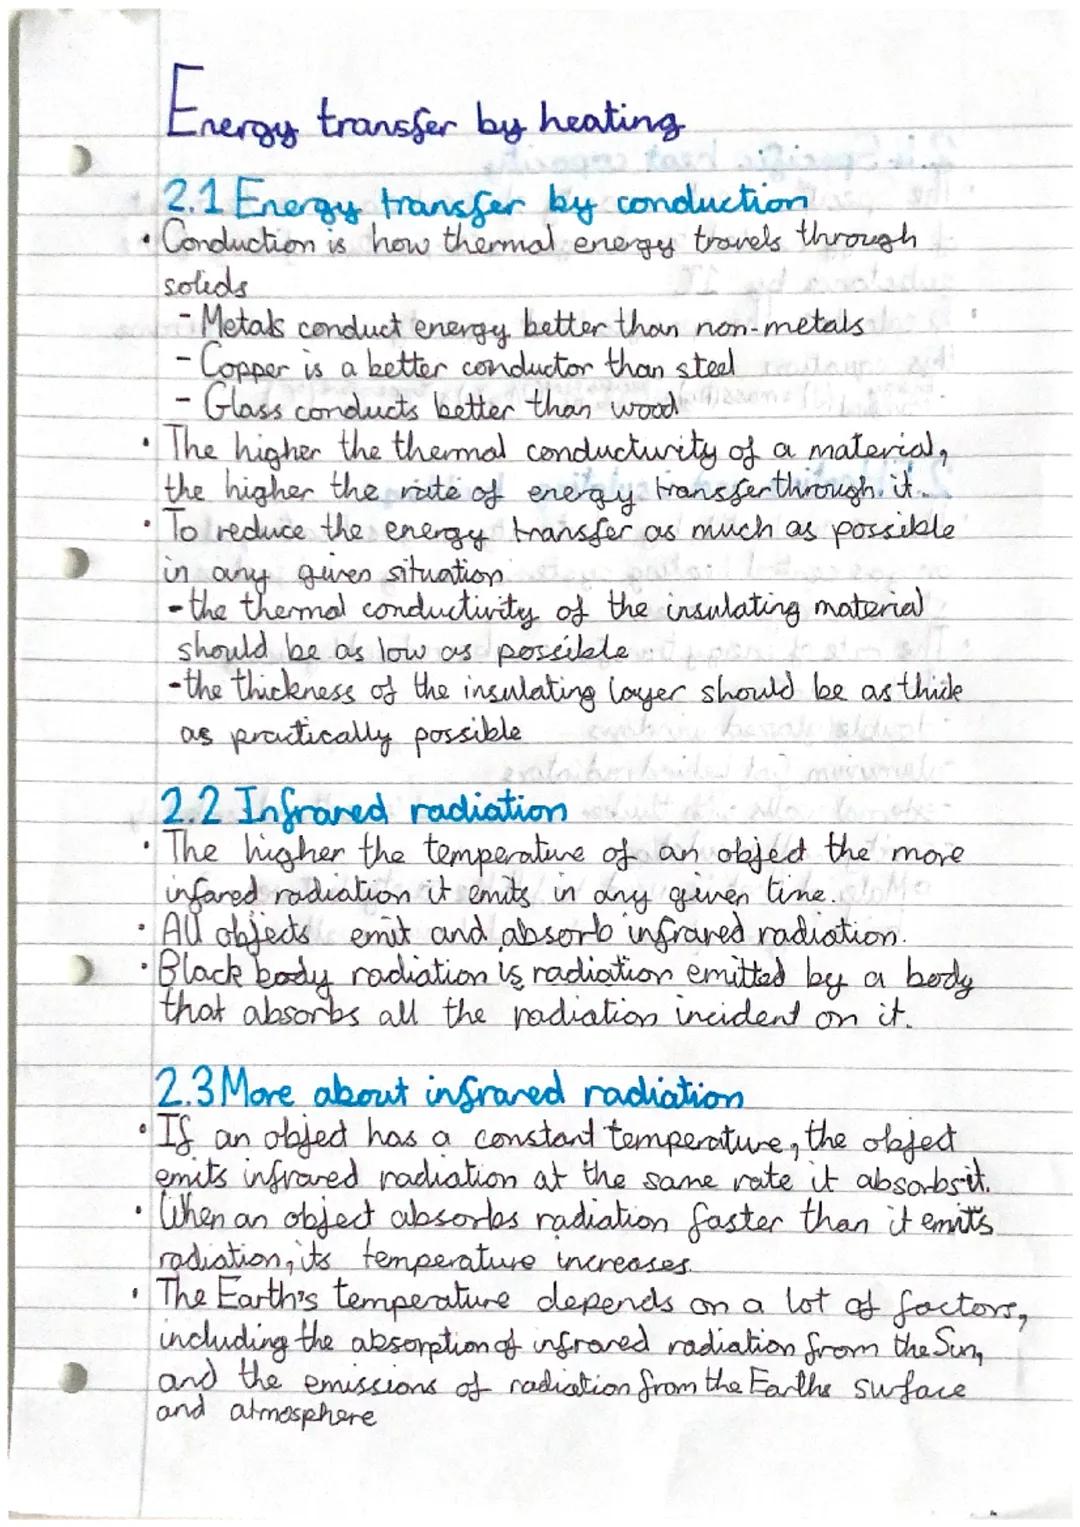 Energy transfer by heating
2.1 Energy transfer by conduction
• Conduction is how thermal energy travels through
solids
- Metals conduct energy better than non-metals
- Copper is a better conductor than steel
- Glass conducts better than wood
• The higher the thermal conductivity of a material,
the higher the rate of energy transfer through it.
• To reduce the energy transfer as much as possible
in any given situation
- the thermal conductivity of the insulating material
should be as low as possible
- the thickness of the insulating layer should be as thick
as practically possible
2.2 Infrared radiation
• The higher the temperature of an object the more
infared radiation it emits in any given time.
• All objects emit and absorb infrared radiation.
• Black body radiation is radiation emitted by a body
that absorbs all the radiation incident on it.
2.3 More about infrared radiation
• If an object has a constant temperature, the object
emits infrared radiation at the same rate it absorbs it.
• When an object absorbs radiation faster than it emits
radiation, its temperature increases.
• The Earth's temperature depends on a lot of factors,
including the absorption of infrared radiation from the Sun,
and the emissions of radiation from the Earths surface
and atmosphere